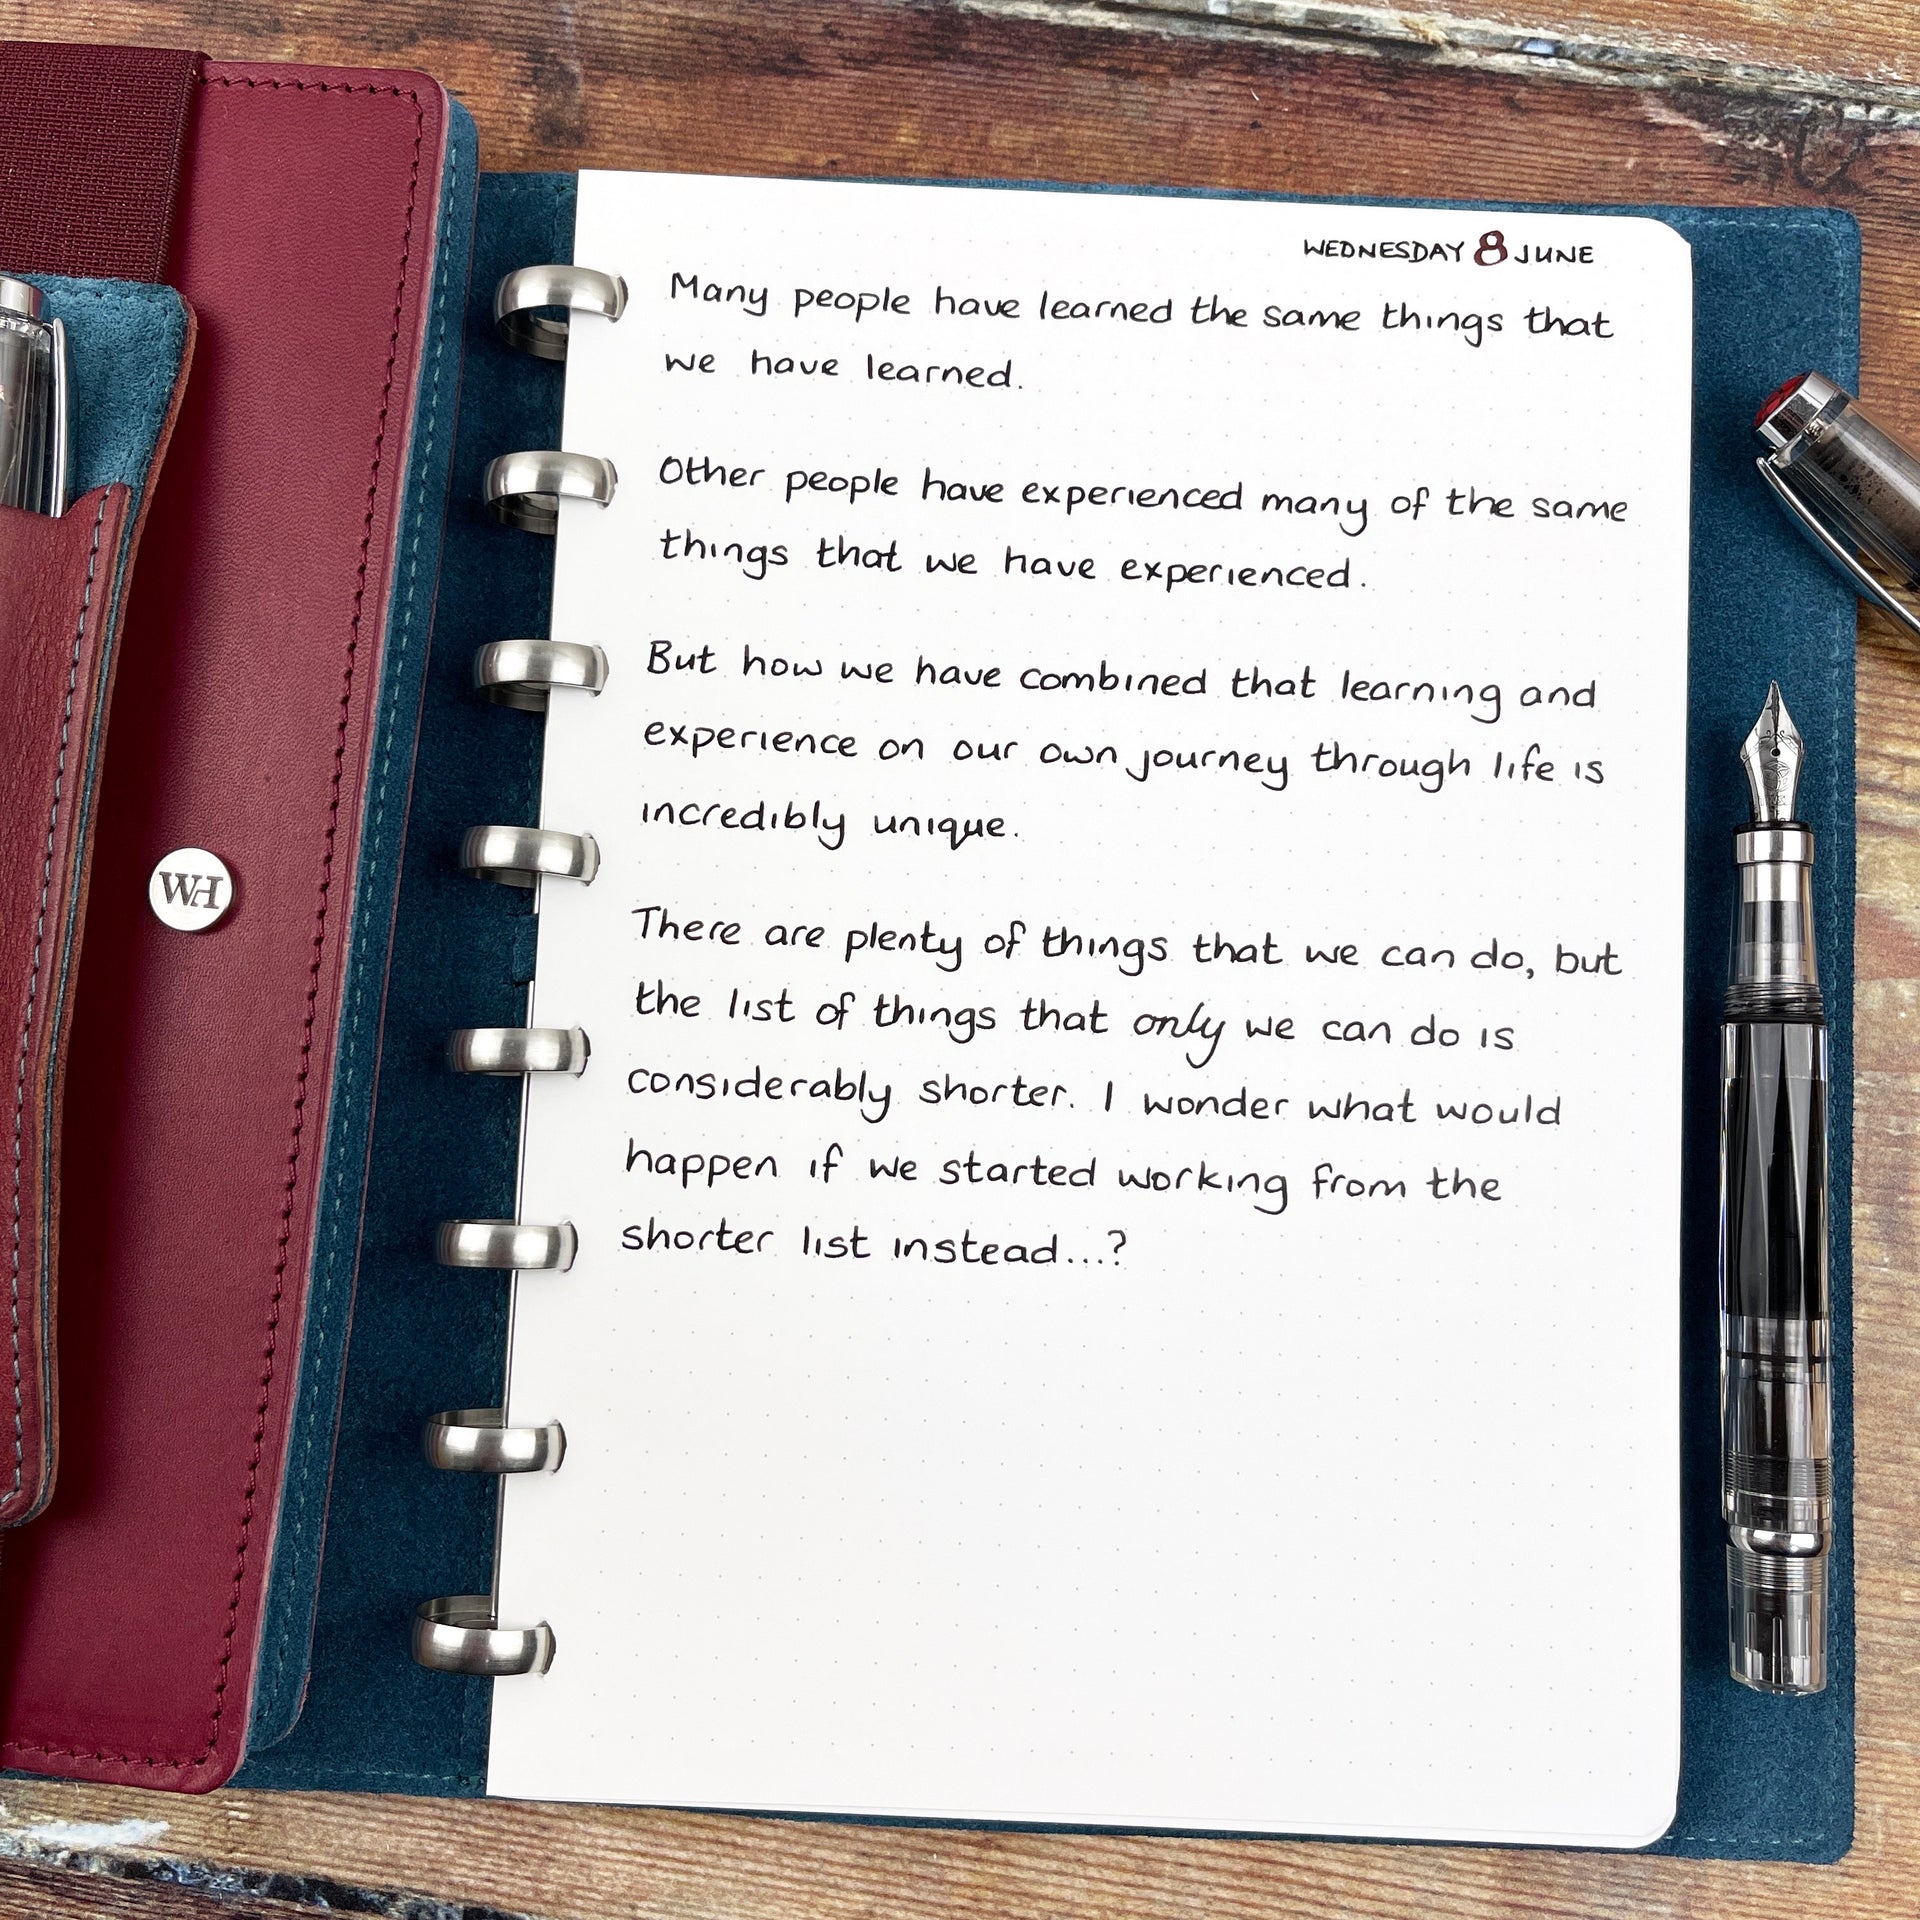 WEDNESDAY 8 JUNE
Many people have learned the same things that
we have learned.
Other people have experienced many of the same
things that we have experienced.
But how we have combined that learning and
experience on our own journey through life is
incredibly unique.
There are plenty of things that we can do, but
the list of things that only we can do is
considerably shorter. I wonder what would
happen if we started working from the
shorter list instead...?
WH